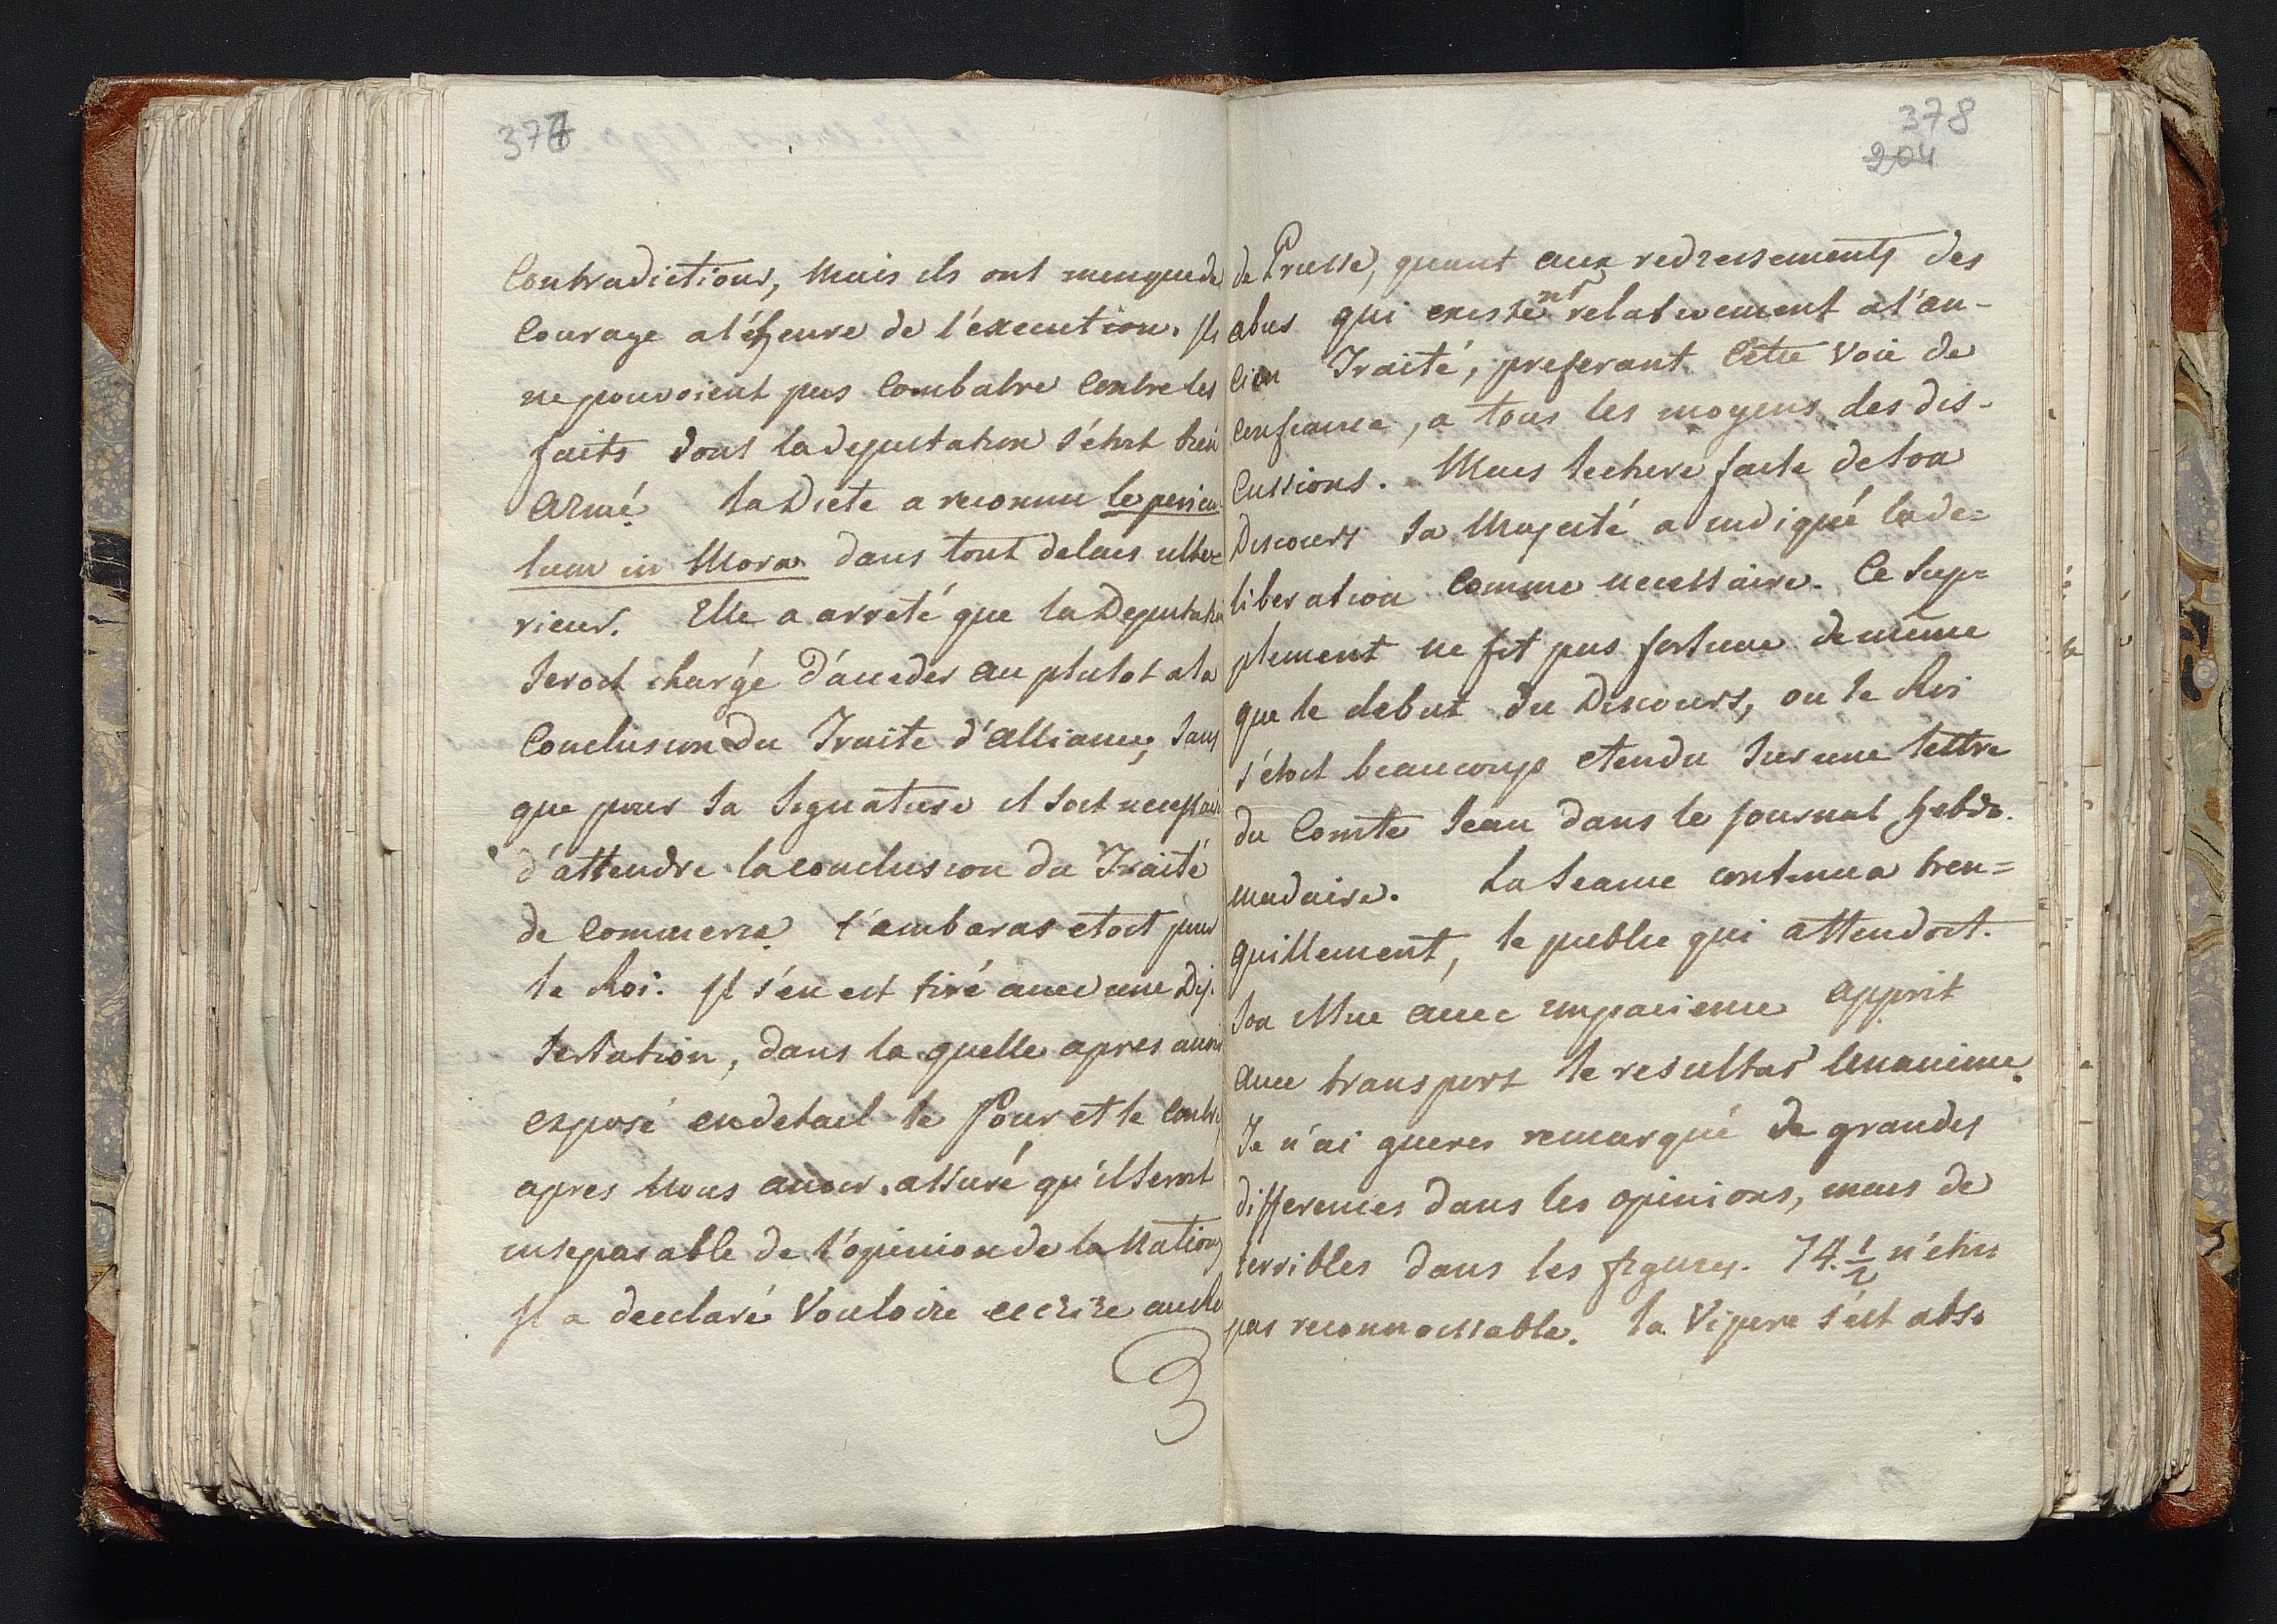 377
Contradictions, Mais ils ont menqué de
Courage a l'éheure de l'execution. Ils
ne pouvoient pas Combatre Contre les
faits dont la deputation s'étoit bien
Armé. La Diete a reconnu le pericu-
lum in Mora dans tout delais ulte=
rieur. Elle a arreté que la Deputation
Seroit chargé d'acceder au plutot a la
Conclusion du Traite d'Alliance, Sans
que pour Sa Signature il Soit necessaire
d'attendre la conclusion du Traité
de Commerce. L'ambaras etoit pour
le Roi. Il s'en est tiré avec une Dis-
sertation, dans la quelle apres avoir
exposé en detail le Pour et le Contre,
apres Nous avoir assuré qu'il Seroit
inseparable de l'opinion de la Nation,
Il a decclaré Vouloire eccrire au Roi
378
204
de Prusse, quant aux redressements des
abus qui existent relativement a l'an-
cien Traité, preferant Cette Voie de
Confiance, a tous les moyens des dis-
cussions. Mais le chere faite de Son
Discours Sa Majesté a indiqué la de=
liberation Comme necessaire. Ce Sup=
plement ne fit pas fortune de même
que le debut du Discours, ou le Roi
s'étoit beaucoup etendu Sur une lettre
du Comte Jean dans le Journal hebdo-
madaire. La Seance continua tren=
quillement, le public qui attendoit
Son issue avec impacience Apprit
avec transport le resultat Unanime.
Je n'ai gueres remarqué de grandes
differences dans les opinions, mais de
terribles dans les figures. 74.½ n'étoit
pas reconnoissable. La Vipere s'est abs-